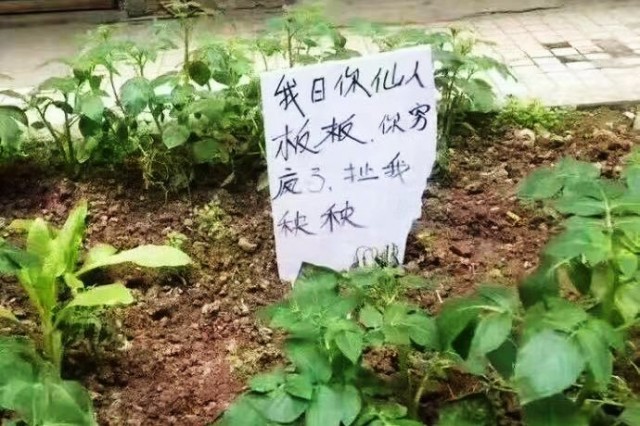 我日你仙人
板板、你穷
疯了、扯我
秧秧